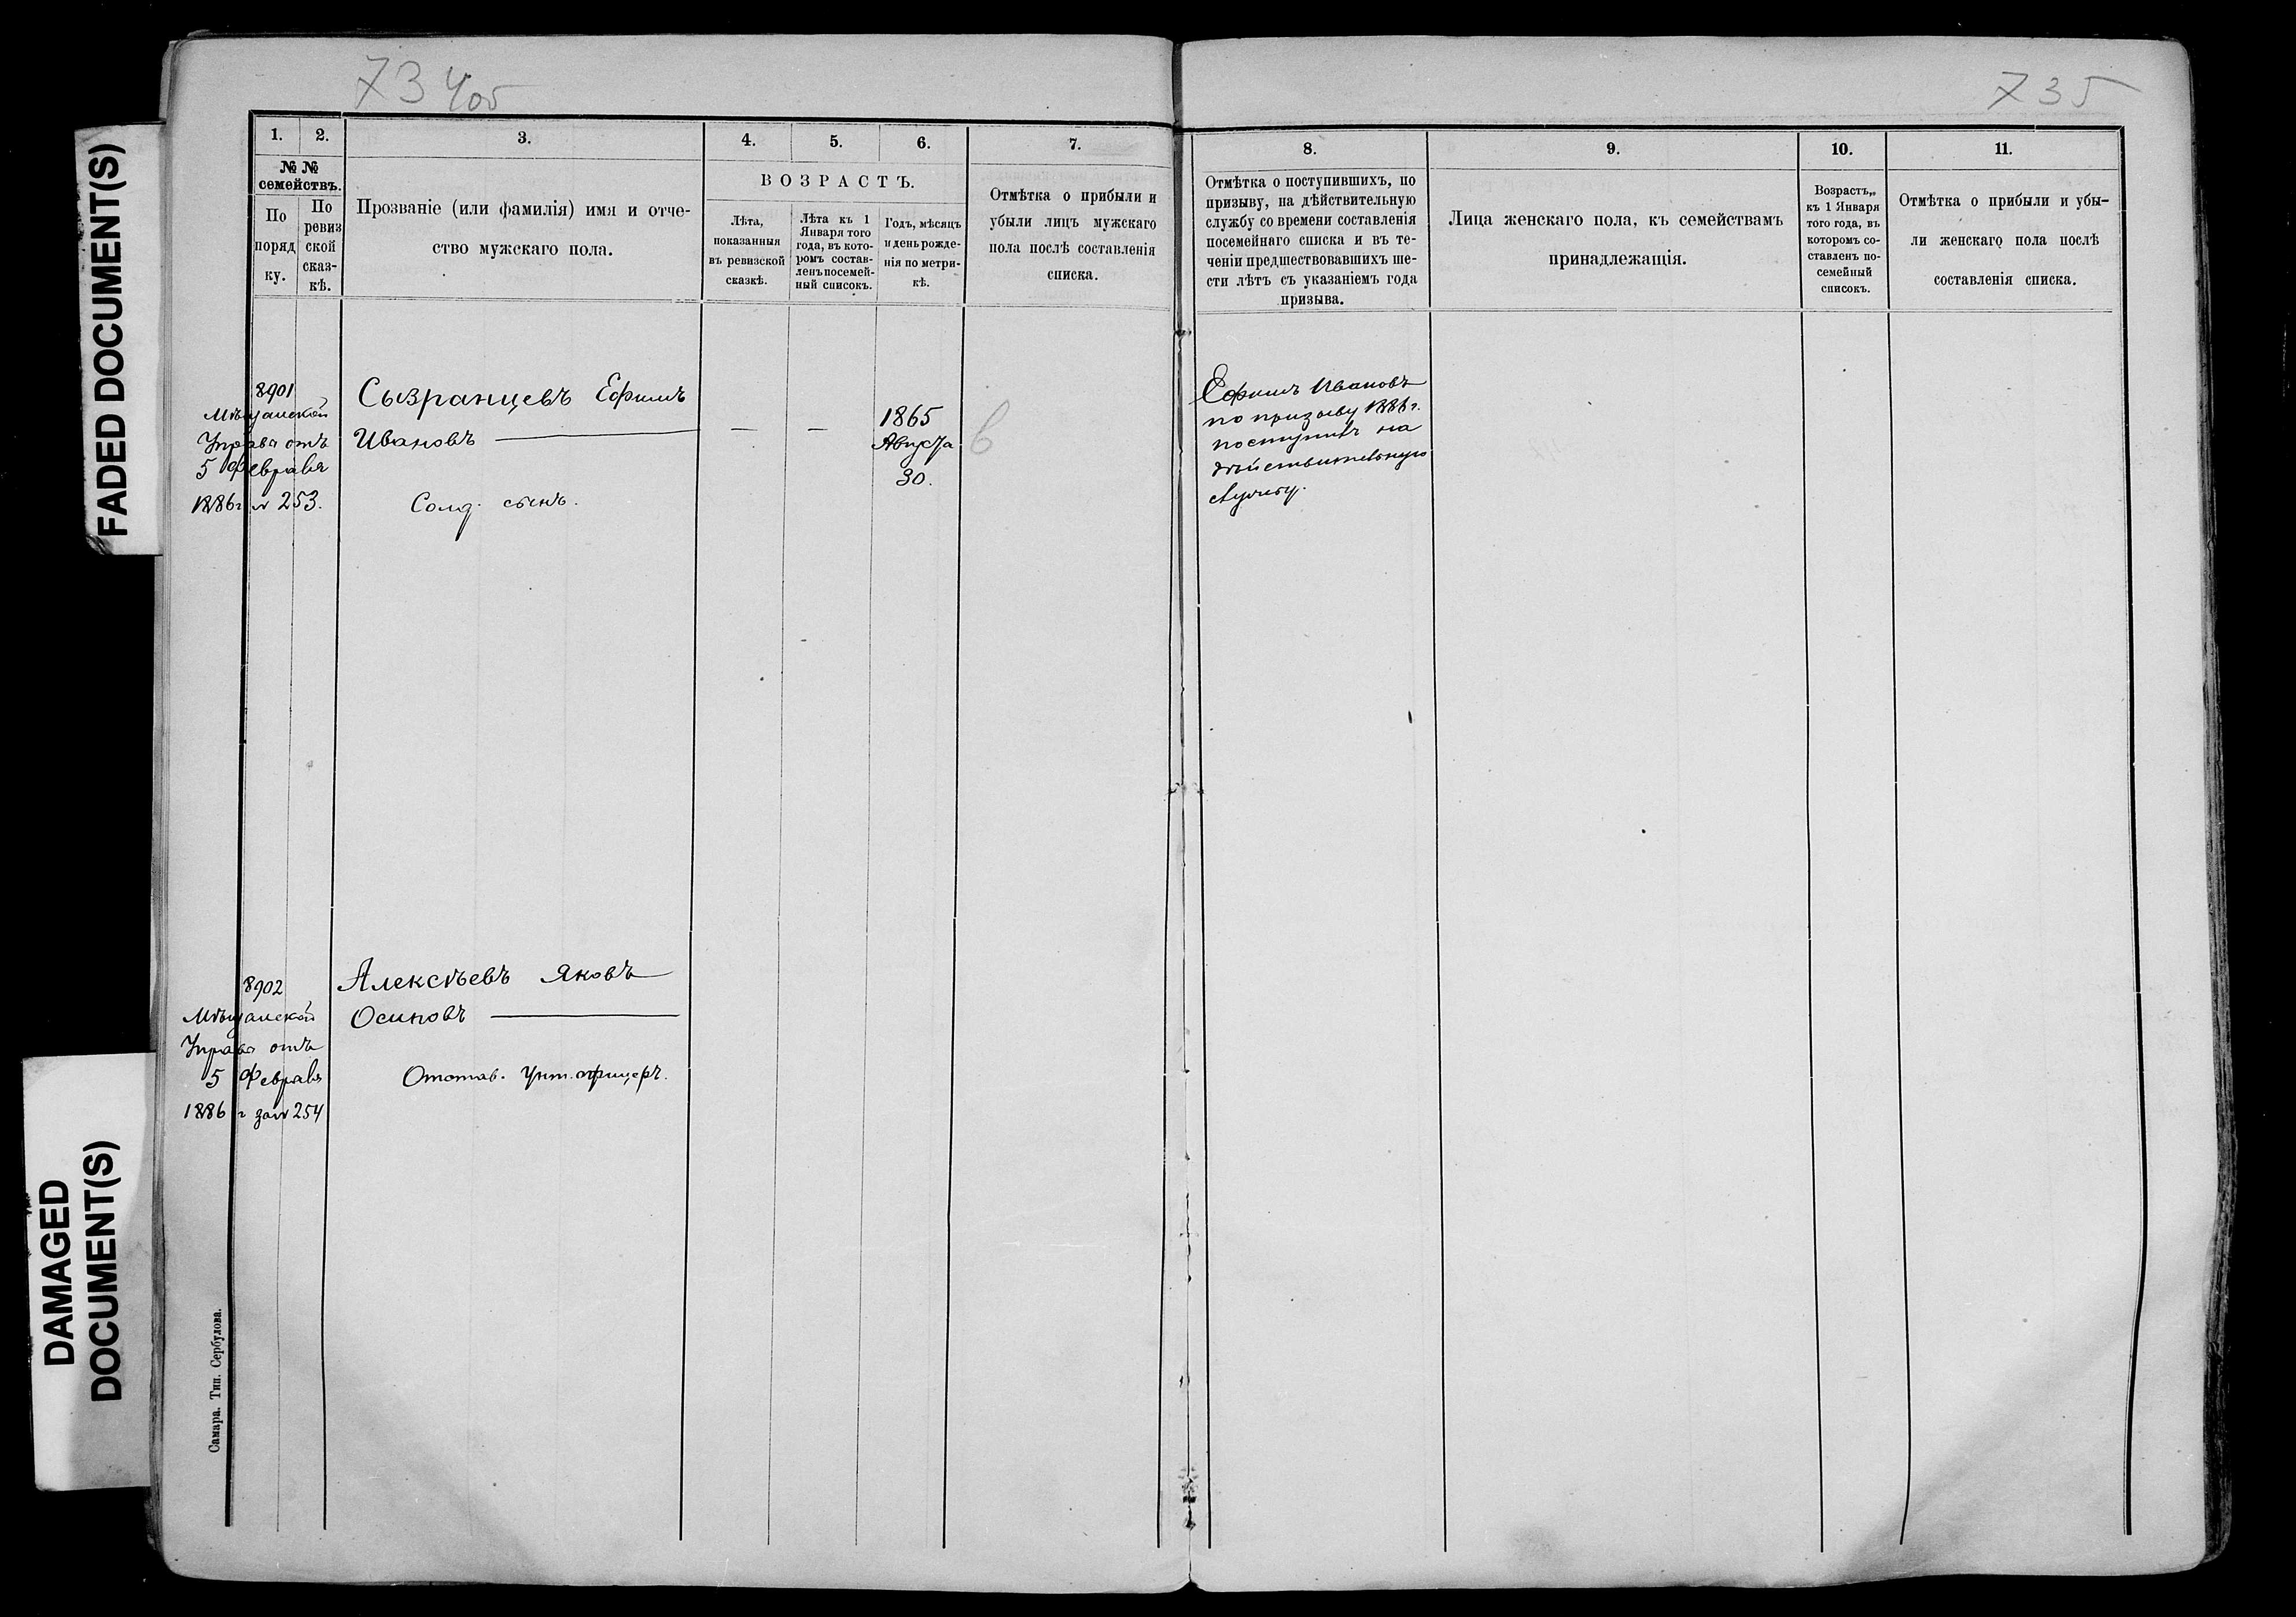 FADED DOCUMENT(S)
DAMAGED
DOCUMENT(S)
734об
1. 2. 3. 4. 5. 6. 7.
№ № семействъ.
По порядку.
По ревизской сказкѣ.
Прозваніе (или фамилія) имя и отче-
ство мужскаго пола.
ВОЗРАСТЪ.
Лѣта,
показанныя
въ ревизской
сказкѣ.
Лѣта къ 1
Января того
года, въ кото-
ромъ состав-
ленъ посемей-
ный списокъ.
Годъ, мѣсяцъ
и день рожде-
нія по метри-
кѣ.
Отмѣтка о прибыли и
убыли лицъ мужскаго
пола послѣ составленія
списка.
8901
Мѣщанской
Управы отъ
5 Февраля
1886 г № 253.
Сызранцевъ Ефимъ
Ивановъ
Солд. сынъ.
— —
1865
Августа
30.
в
8902
Мѣщанской
Управы отъ
5 Февраля
1886 г за № 254
Алексѣевъ Яковъ
Осиповъ
Отстав. Унт. офицеръ.
Самара. Тип. Сербулова.
735
8. 9. 10. 11.
Отмѣтка о поступившихъ, по
призыву, на дѣйствительную
службу со времени составленія
посемейнаго списка и въ те-
ченіи предшествовавшихъ ше-
сти лѣтъ съ указаніемъ года
призыва.
Лица женскаго пола, къ семействамъ
принадлежащія.
Возрастъ,
къ 1 Января
того года, въ
которомъ со-
ставленъ по-
семейный
списокъ.
Отмѣтка о прибыли и убы-
ли женскаго пола послѣ
составленія списка.
Ефимъ Ивановъ
по призыву 1886 г.
поступилъ на
дѣйствительную
службу.